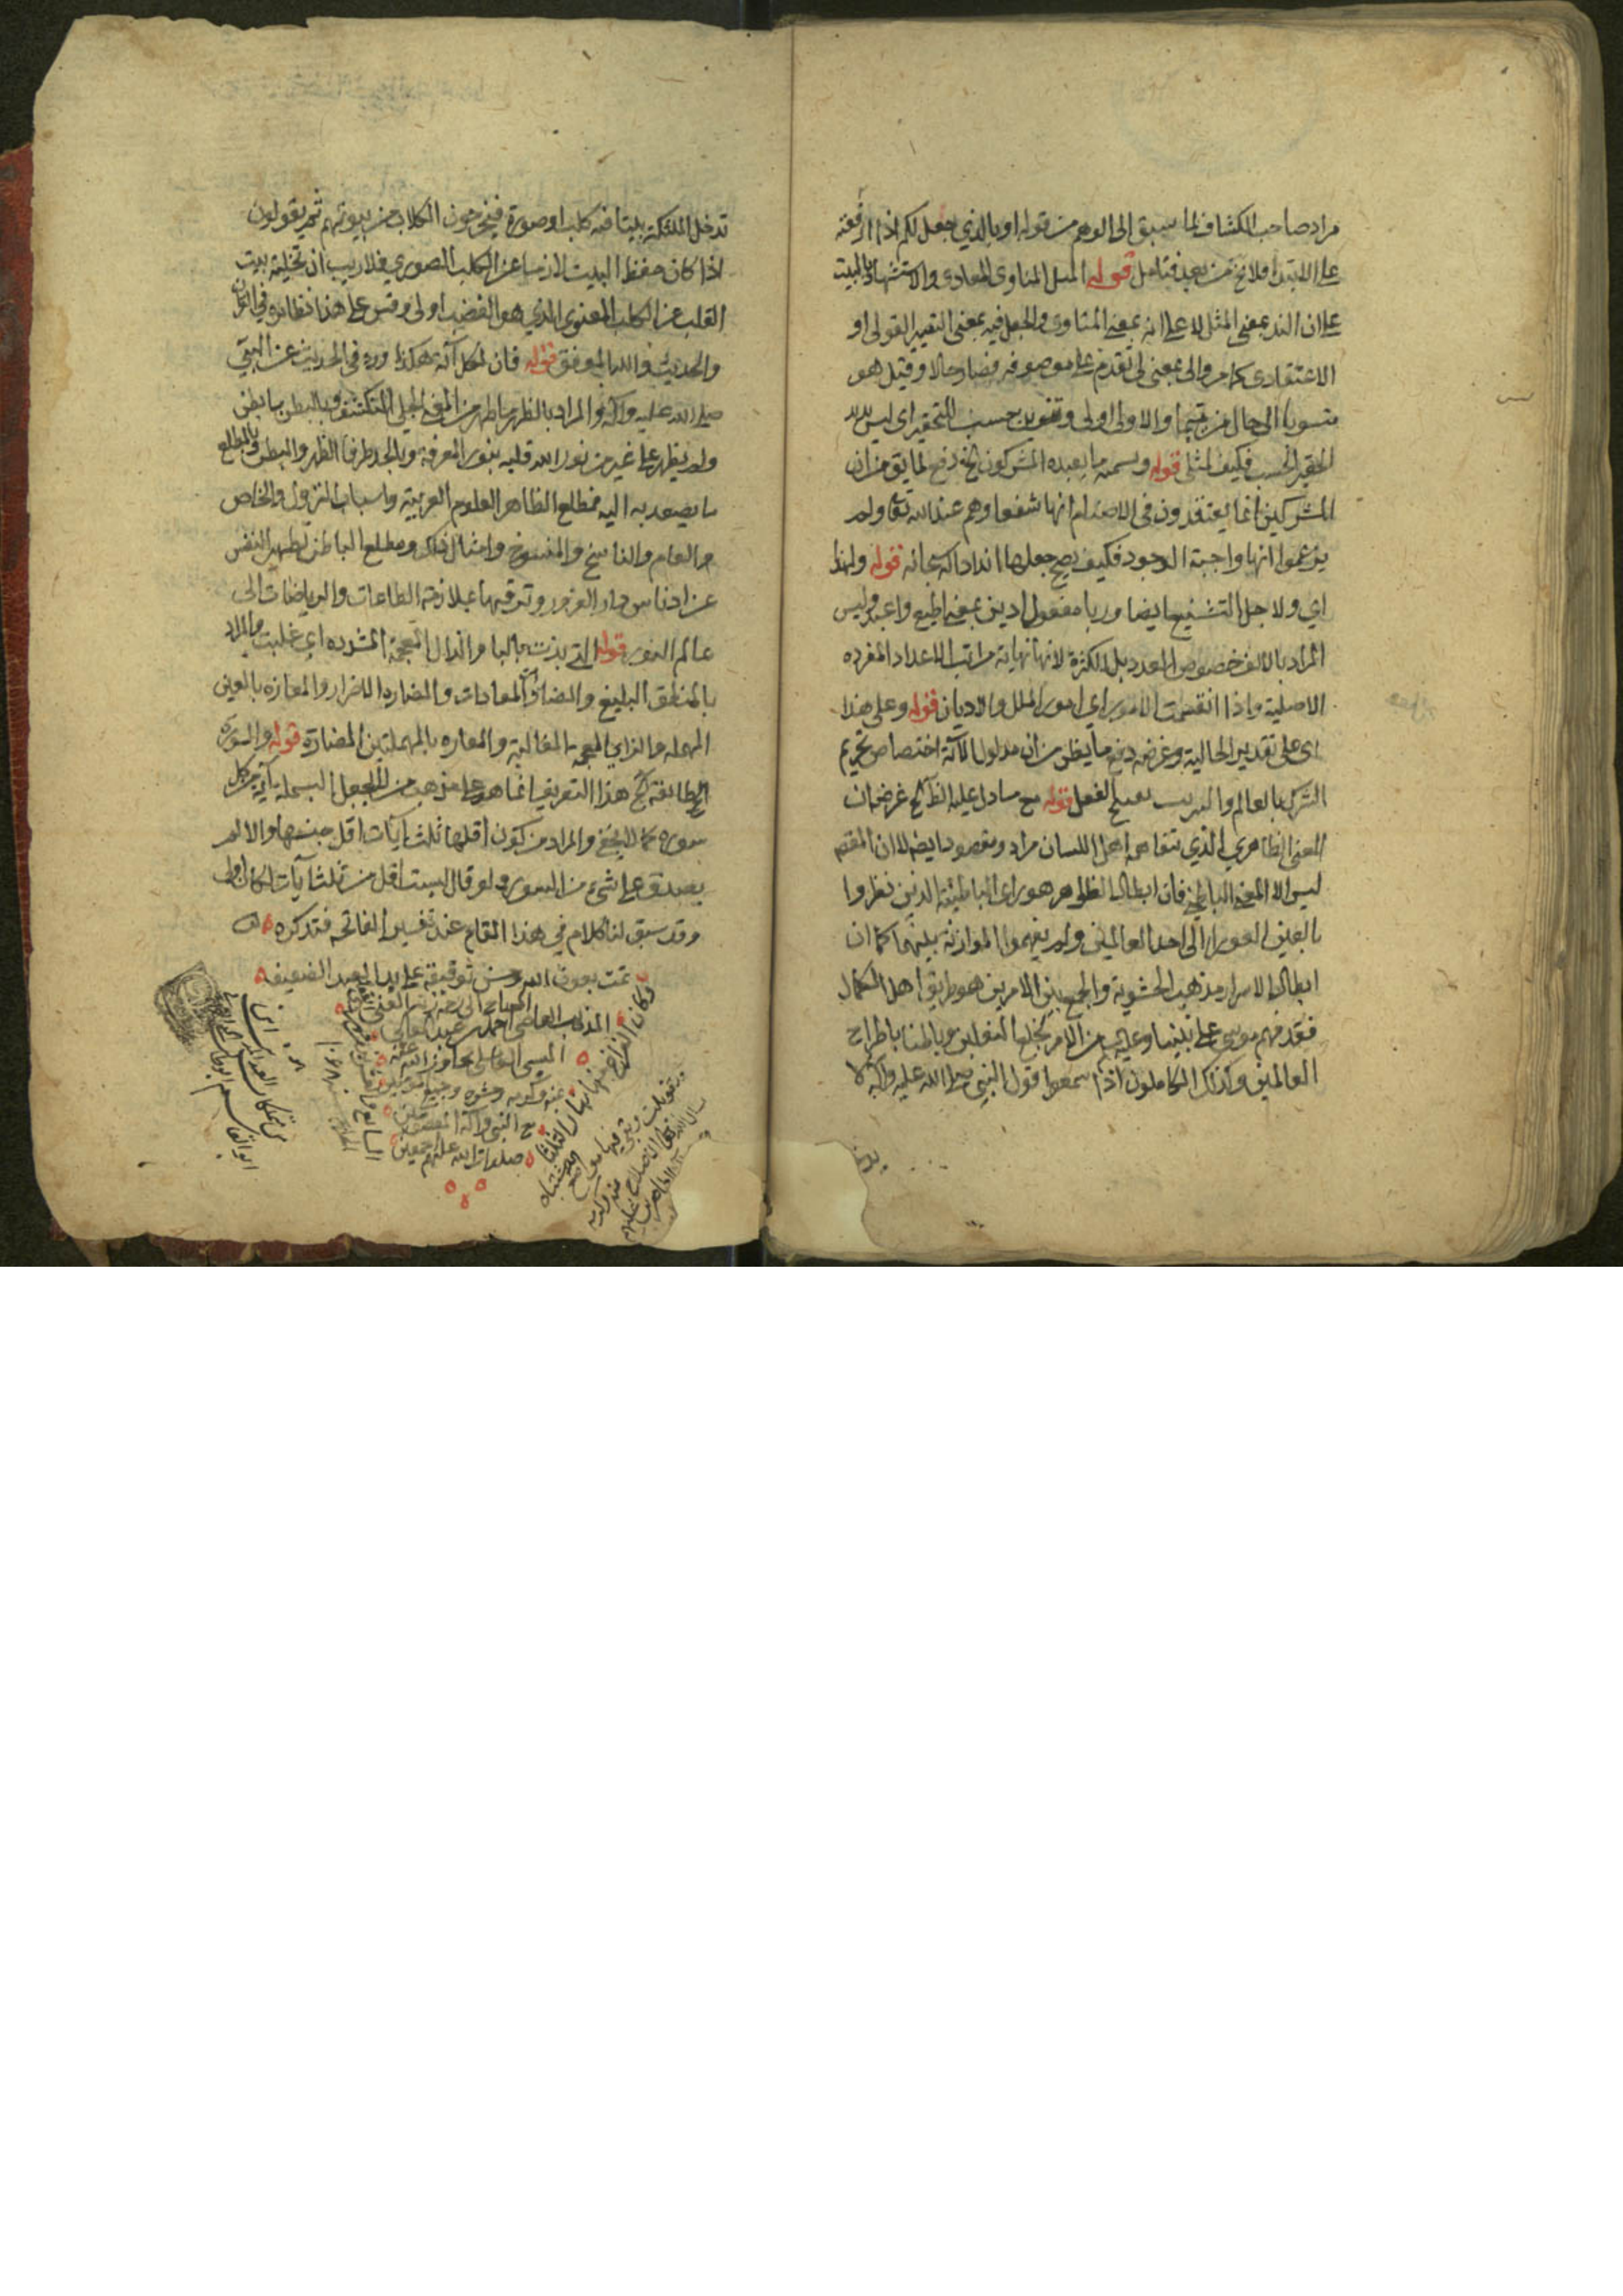 مراد صاحب الكشاف لما سبق الى الوهم من قوله او بالذي جعل لكم اذا رفعته
على الابتداء فلا يخ من بعد فتامل قوله المثل المناوى المعادى والاستشهاد بالبيت
على ان الند بمعنى المثل لا على انه بمعنى المناوى والجعل فيه بمعنى التصيير القولى او
الاعتقادى كما مر والى بمعنى لى تقدم على موصوفه فصار حالا وقيل هو
منسوبا الى حال من تيما والاولى اولى وتنوين حسب للتحقير اى ليس ند
الحقير الحسب فكيف لمثلى قوله وتسمية ما يعبده المشركون الخ دفع لما يق من ان
المشركين انما يعتقدون فى الاصنام انها شفعاؤهم عند الله تعالى ولم
يزعموا انها واجبة الوجود فكيف يصح جعلها اندادا له سبحانه قوله ولهذا
اي ولاجل التشنيع ايضا وربا مفعول ادين بمعنى اطيع واعبد وليس
المراد بالالف خصوص العدد بل الكثرة لانها نهاية مراتب الاعداد المفرده
الاصلية واذا انقسمت الامور اي امور الملل والاديان قوله وعلى هذا
اى على تقدير الحالية وغرضه دفع ما يظن من ان مدلول الآية اختصاص تحريم
الشرك بالعالم والتقريب بقبح الفعل قوله مع ما دل عليه الظ الخ غرضه ان
المعنى الظاهري الذي يتفاهمه اهل اللسان مراد ومقصود ايضا لا ان المقصد
ليس الا المعنى الباطنى فان ابطال الظواهر هو راى الباطنية الذين نظروا
بالعين العوراء الى احد العالمين ولم يفهموا الموازنة بينهما كما ان
ابطال الاسرار مذهب الحشوية والجمع بين الامرين هو طريق اهل الكمال
فقد فهم موسى على نبينا وعليه من الامر بخلع النعلين وباطنا باطراح
العالمين وكذلك الكاملون اذا سمعوا قول النبي صلى الله عليه وآله لا
تدخل الملئكة بيتا فيه كلب او صورة فيخرجون الكلاب من بيوتهم ثم يقولون
اذا كان حفظ البيت لازما عن الكلب الصوري فلا ريب ان تخلية بيت
القلب عن الكلب المعنوى الذي هو الغضب اولى وقس على هذا نظائره في القرآن
والحديث والله الموفق قوله فان لكل آية هكذا ورد في الحديث عن النبي
صلى الله عليه وآله والمراد بالظهر ما ظهر من المعنى الجلى المنكشف وبالبطن ما بطن
ولم يظهر على غير من نور الله قلبه بنور المعرفة وبالحد طرفا الظهر والبطن وبالمطلع
ما يصعد به اليه فمطلع الظاهر العلوم العربية واسباب النزول والخاص
والعام والناسخ والمنسوخ وامثال ذلك ومطلع الباطن تطهير النفس
عن ادناس دار الغرور وترقيها بملازمة الطاعات والرياضات الى
عالم النور قوله التي بذت بالباء والذال المعجمة المشددة اي غلبت والمراد
بالمنطق البليغ والمضادة المعادات والمضارة الاضرار والمعازة بالعين
المهملة والزاي المعجمة المغالبة والمعارة بالمهملتين المضارة قوله والسورة
الطائفة الخ هذا التعريف انما هو على مذهب من لا يجعل البسملة آية من كل
سورة كما لا يخفى والمراد من كون اقلها ثلث آيات اقل جنسها والا لم
يصدق على شيء من السور ولو قال ليست اقل من ثلث آيات لكان اولى
وقد سبق لنا كلام في هذا المقام عند تفسير الفاتحة فتذكره
تمت بعون الله وحسن توفيقه على يد العبد الضعيف
المحتاج الى رحمة ربه الغنى
المذنب العاصى احمد بن عبد العالى
الميسى العاملى تجاوز الله عنه
مع النبي وآله المعصومين
صلوات الله عليهم اجمعين
وكان الفراغ